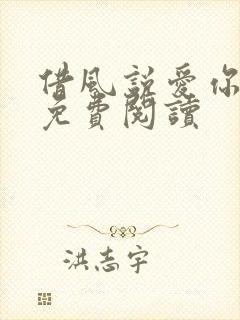 借風說愛你
免費閱讀
洪志宇